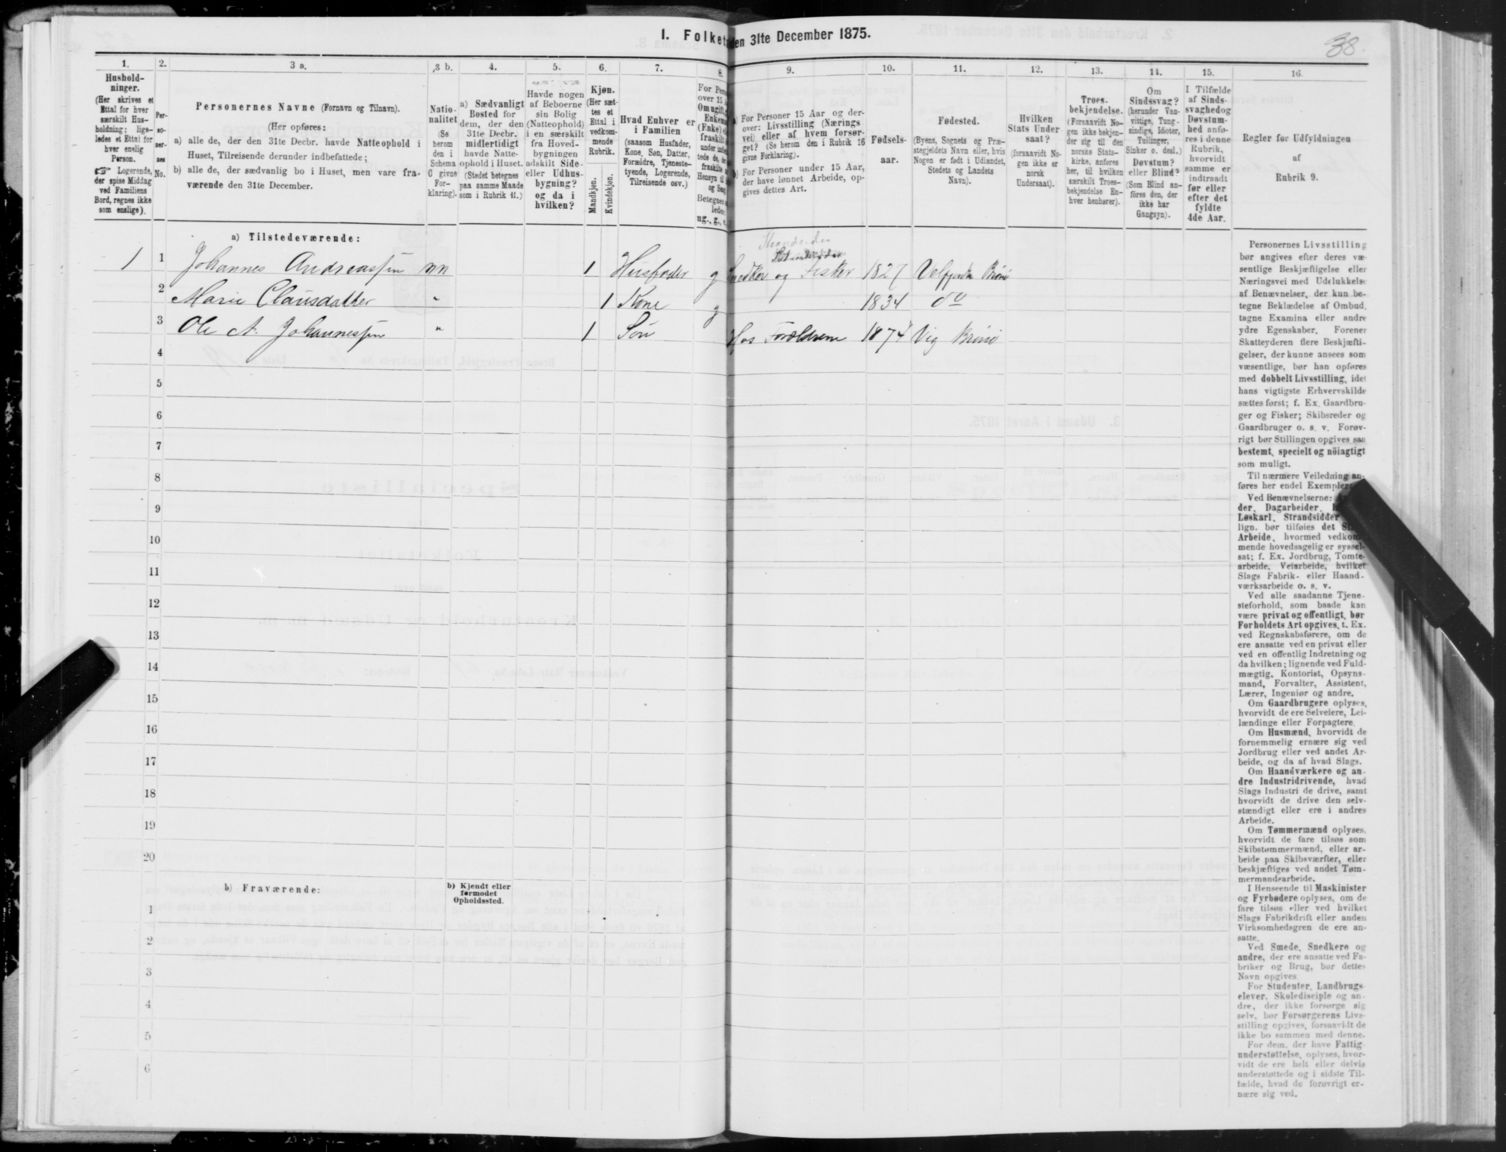 I. Folketa den 31te December 1875.
38.
1.
2.
3 a.
3 b.
4.
5.
6.
7.
8.
9.
10.
11.
12.
13.
14.
15.
16.
Hushold-
ninger.
(Her skrives et
Ettal for hver
særskilt Hus-
holdning; lige-
ledes et Ettal for
hver enslig
Person.
☞ Logerende,
der spise Middag
ved Familiens
Bord, regnes ikke
som enslige).
Per-
so-
ner-
nes
No.
Personernes Navne (Fornavn og Tilnavn).
(Her opføres:
a) alle de, der den 31te Decbr. havde Natteophold i
Huset, Tilreisende derunder indbefattede;
b) alle de, der sædvanlig bo i Huset, men vare fra-
værende den 31te December.
Natio-
nalitet
(Se
herom
den i
Schema
O givne
For-
klaring).
a) Sædvanligt
Bosted for
dem, der den
31te Decbr.
midlertidigt
havde Natte-
ophold i Huset.
(Stedet betegnes
paa samme Maade
som i Rubrik 11.)
Havde nogen
af Beboerne
sin Bolig
(Natteophold)
i en særskilt
fra Hoved-
bygningen
adskilt Side-
eller Udhus-
bygning?
og da i
hvilken?
Kjøn.
(Her sæt-
tes et
Ettal i
vedkom-
mende
Rubrik.
Mandkjøn.
Kvindekjøn.
Hvad Enhver er
i Familien
(saasom Husfader,
Kone, Søn, Datter,
Forældre, Tjeneste-
tyende, Logerende,
Tilreisende osv.)
For Personer 15 Aar og der-
over: Livsstilling (Nærings-
vei) eller af hvem forsør-
get? (Se herom den i Rubrik 16
givne Forklaring).
For Personer under 15 Aar,
der have lønnet Arbeide, op-
gives dettes Art.
Fødsels-
aar.
Fødested.
(Byens, Sognets og Præ-
stegjeldets Navn eller, hvis
Nogen er født i Udlandet,
Stedets og Landets
Navn).
Hvilken
Stats Under
saat?
(forsaavidt No-
gen ikke er
norsk
Undersaat).
Troes-
bekjendelse.
(Forsaavidt No-
gen ikke bekjen-
der sig til den
norske Stats-
kirke, anføres
her, til hvilken
særskilt Troes-
bekjendelse En-
hver henhører).
Om
Sindssvag?
(herunder Van-
vittige, Tung-
sindige, Idioter,
Tullinger,
Sinker o. desl.)
Døvstum?
eller Blind?
(Som Blind an-
føres den, der
ikke har
Gangsyn).
I Tilfælde
af Sinds-
svaghed og
Døvstum-
hed anfø-
res i denne
Rubrik,
hvorvidt
samme er
indtraadt
før eller
efter det
fyldte
4de Aar.
Regler for Udfyldningen
af
Rubrik 9.
a) Tilstedeværende:
1 1 Johannes Andreassen nn 1 Husfader g og Fisker 1827 Brønø
2 Marie Clausdatter " 1 Kone g 1834 do
3 Ole A. Johannessen " 1 Søn Hos Forældrene 1874 Vig Brønø
4
5
6
7
8
9
10
11
12
13
14
15
16
17
18
19
20
b) Fraværende:
b) Kjendt eller
formodet
Opholdssted.
1
2
3
4
5
6
Personernes Livsstilling
bør angives efter deres væ-
sentlige Beskjæftigelse eller
Næringsvei med Udelukkelse
af Benævnelser, der kun be-
tegne Beklædelse af Ombud,
tagne Examina eller andre
ydre Egenskaber. Forener
Skatteyderen flere Beskjæfti-
gelser, der kunne ansees som
væsentlige, bør han opføres
med dobbelt Livsstilling, idet
hans vigtigste Erhvervskilde
sættes først; f. Ex. Gaardbru-
ger og Fisker; Skibsreder og
Gaardbruger o. s. v. Forøv-
rigt bør Stillingen opgives saa
bestemt, specielt og nöiagtigt
som muligt.
Til nærmere Veiledning an-
føres her endel Exempler
Ved Benævnelserne:
der, Dagarbeider,
Løskarl, Strandsidder
lign. bør tilføies det
Arbeide, hvormed vedkom-
mende hovedsagelig er syssel-
sat; f. Ex. Jordbrug, Tomte-
arbeide, Veiarbeide, hvilket
Slags Fabrik- eller Haand-
værksarbeide o. s. v.
Ved alle saadanne Tjene-
steforhold, som baade kan
være privat og offentligt, bør
Forholdets Art opgives, t. Ex.
ved Regnskabsførere, om de
ere ansatte ved en privat eller
ved en offentlig Indretning og
da hvilken; lignende ved Fuld-
mægtig, Kontorist, Opsyns-
mand, Forvalter, Assistent,
Lærer, Ingeniør og andre.
Om Gaardbrugere oplyses,
hvorvidt de ere Selveiere, Lei-
lændinge eller Forpagtere.
Om Husmænd, hvorvidt de
fornemmelig ernære sig ved
Jordbrug eller ved andet Ar-
beide, og da af hvad Slags.
Om Haandværkere og an-
dre Industridrivende, hvad
Slags Industri de drive, samt
hvorvidt de drive den selv-
stændigt eller ere i andres
Arbeide.
Om Tømmermænd oplyses,
hvorvidt de fare tilsøs som
Skibstømmermænd, eller ar-
beide paa Skibsværfter, eller
beskjæftiges ved andet Tøm-
mermandarbeide.
I Henseende til Maskinister
og Fyrbødere oplyses, om de
fare tilsøs eller ved hvilket
Slags Fabrikdrift eller anden
Virksomhedsgren de ere an-
satte.
Ved Smede, Snedkere og
andre, der ere ansatte ved Fa-
briker og Brug, bør dettes
Navn opgives.
For Studenter, Landbrugs-
elever, Skoledisciple og an-
dre, der ikke forsørge sig
selv, bør Forsørgerens Livs-
stilling opgives, forsaavidt de
ikke bo sammen med denne.
For dem, der have Fattig-
understøttelse, oplyses, hvor-
vidt de ere helt eller delvis
understøttede og i sidste Til-
fælde, hvad de forøvrigt er-
nære sig ved.